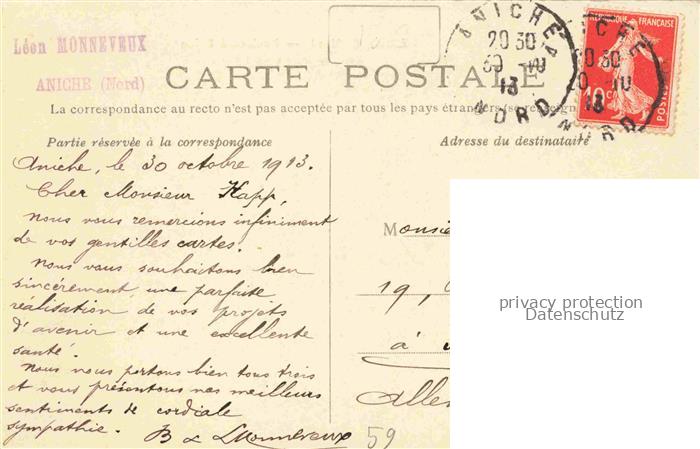 Léon MONNEVEUX
ANICHE (Nord)
CARTE POSTALE
La correspondance au recto n'est pas acceptée par tous les pays étrangers (se renseign
Partie réservée à la correspondance
Aniche, le 30 octobre 1913.
Cher Monsieur Kapp,
Nous vous remercions infiniment
de vos gentilles cartes.
Nous vous souhaitons bien
sincèrement une parfaite
réalisation de vos projets
d'avenir et une excellente
santé.
Nous nous portons bien tous trois
et vous présentons nos meilleurs
sentiments de cordiale
sympathie.
B & L Monneveux
59
ANICHE
20 30
30 - 10
13
NORD
ICHE
20 30
0 - 10
13
NORD
REPUBLIQUE FRANÇAISE
10c
POSTES
Adresse du destinataire
Monsie
19,
à
Alle
privacy protection
Datenschutz